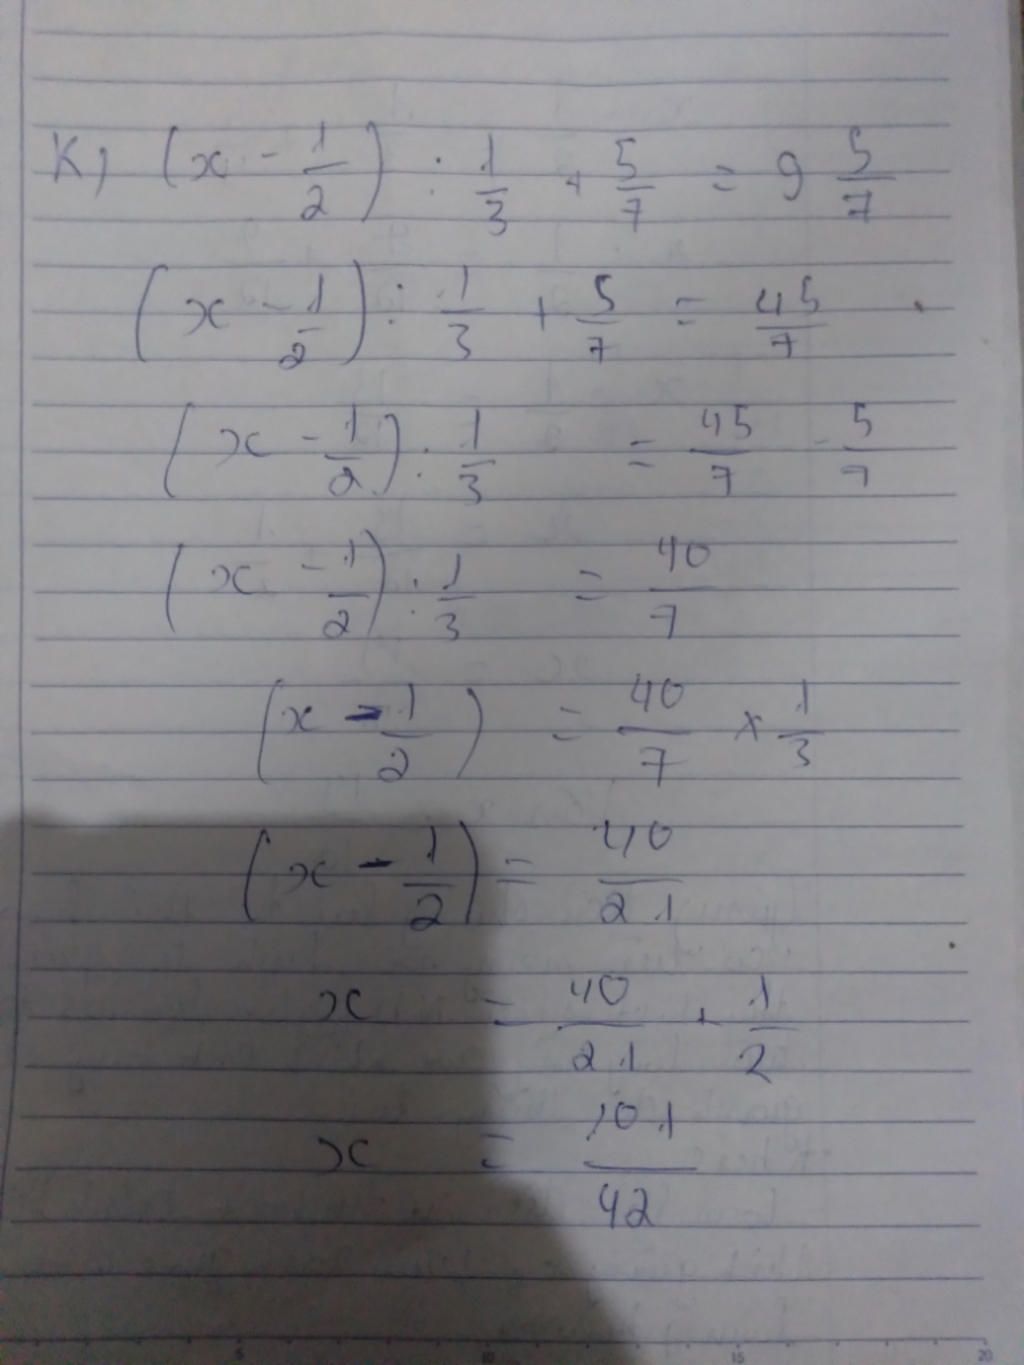 K) (x - 1/2) : 1/3 + 5/7 = 9 5/7
(x - 1/2) : 1/3 + 5/7 = 45/7
(x - 1/2) : 1/3 = 45/7 - 5/7
(x - 1/2) : 1/3 = 40/7
(x - 1/2) = 40/7 × 1/3
(x - 1/2) = 40/21
x = 40/21 + 1/2
x = 101/42
5 10 15 20